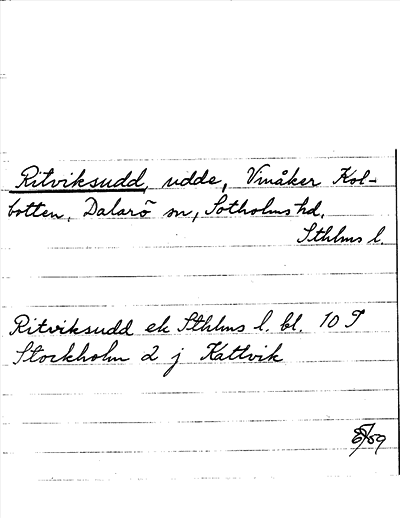 Ritviksudd, udde, Vinåker Kol-
botten, Dalarö sn, Sotholms hd,
Sthlms l.
Ritviksudd ek Sthlms l. bl. 10 I
Stockholm 2 j Kattvik